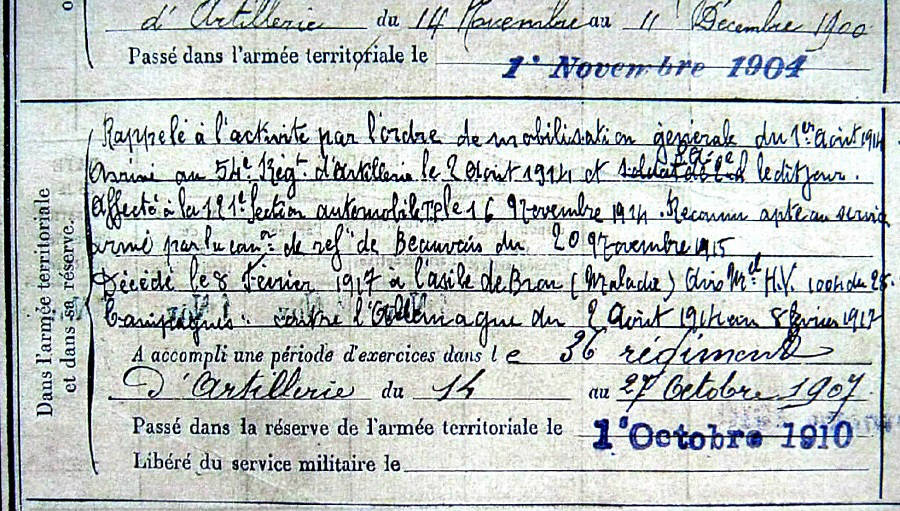 d'Artillerie du 14 Novembre au 11 Décembre 1900
Passé dans l'armée territoriale le 1er Novembre 1904
Dans l'armée territoriale
et dans sa réserve.
Rappelé à l'activité par l'ordre de mobilisation générale du 1er Août 1914
Arrivé au 54e Régt d'Artillerie le 2 Août 1914 et le dit jour.
Affecté à la 121e Section automobile le 16 Novembre 1914. Reconnu apte au service
armé par la con de ref de Beauvais du 20 Novembre 1915
Décédé le 8 Février 1917 à l'asile de Bron (Maladie) H.V. du 28.
Campagnes : contre l'Allemagne du 2 Août 1914 au 8 février 1917
A accompli une période d'exercices dans le 36 régiment
D'Artillerie du 14 au 27 Octobre 1907
Passé dans la réserve de l'armée territoriale le 1er Octobre 1910
Libéré du service militaire le